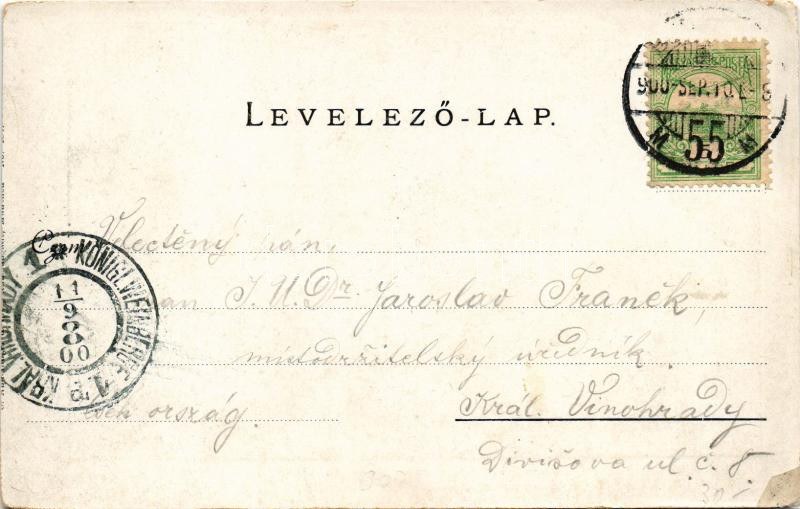 LEVELEZŐ-LAP.
900 SEP. 10
55
Czím
Velectěný pán,
pan J.U.Dr. Jaroslav Franěk,
místodržitelský úředník
Král. Vinohrady
Cseh ország.
Divišova ul. č. 8.
1 KÖNIGL. WEINBERGE 1
KRÁL. VINOHRADY
11
9
8
00